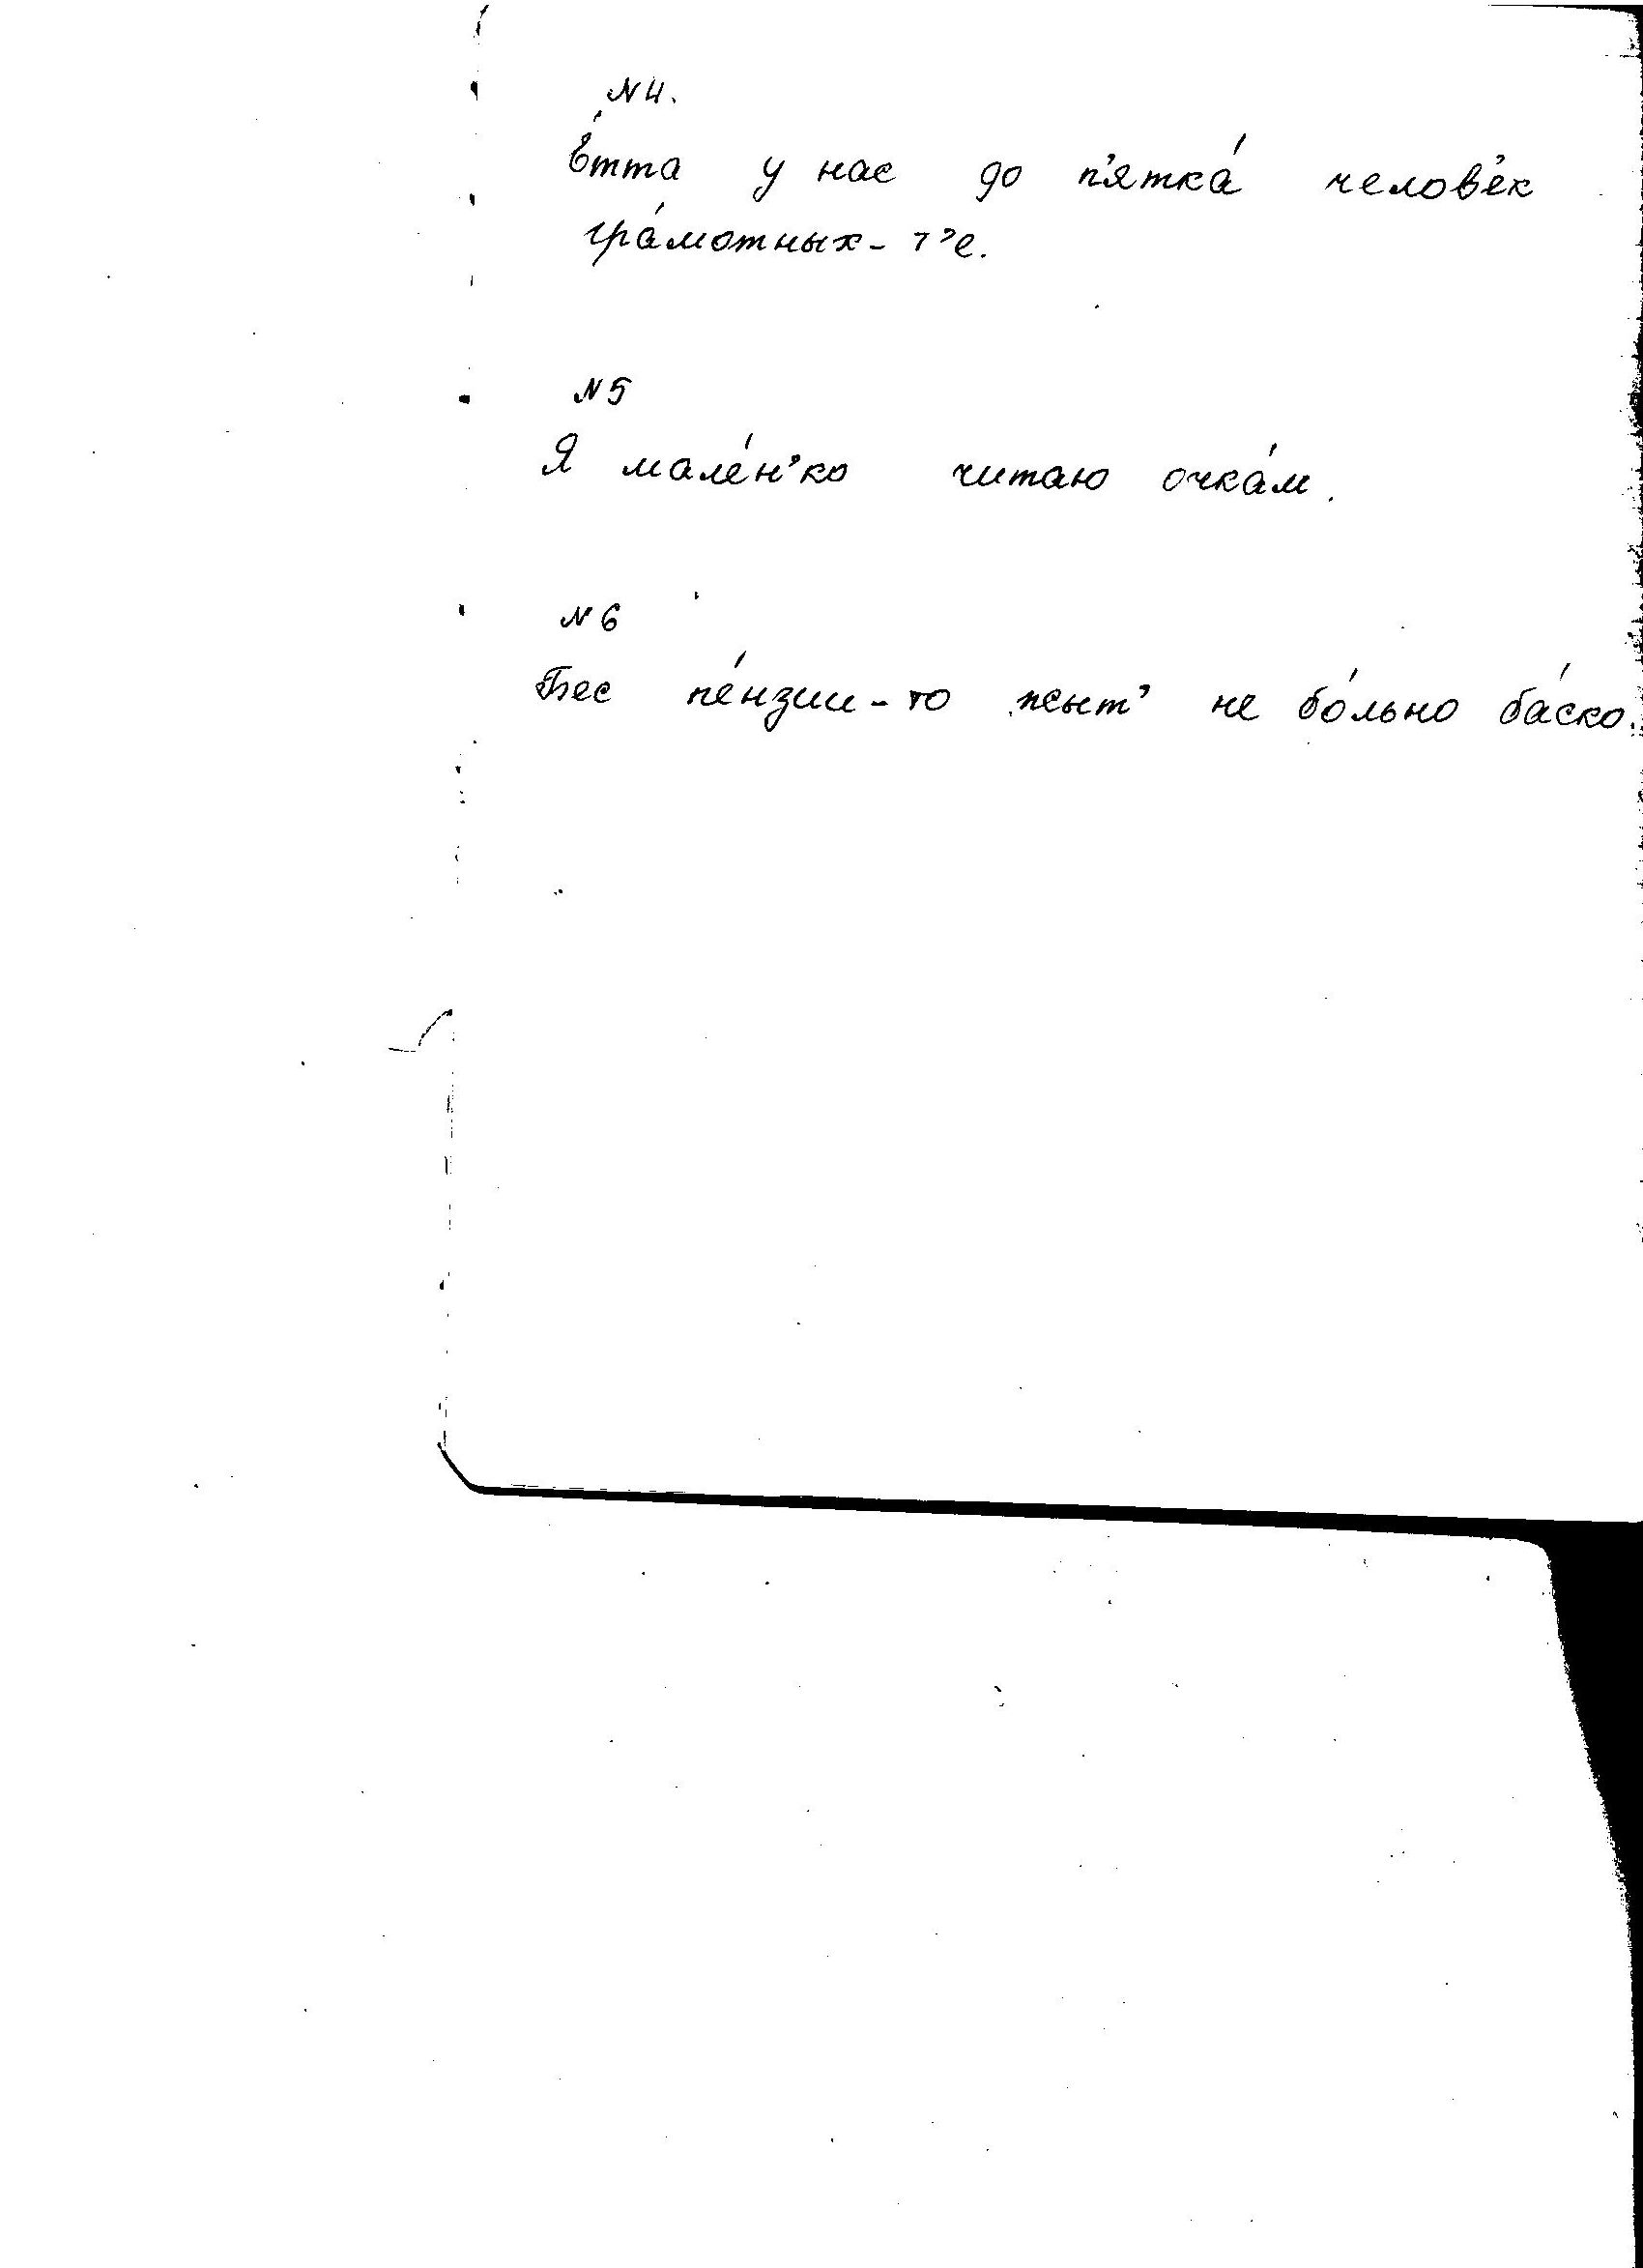 N 4.
Е́тта у нас до п'ятка́ челове́к
гра́мотных-т'е.
N 5
Я мале́н'ко читаю очка́м.
N 6
Бес пе́нзии-то жыт' не бо́льно ба́ско.